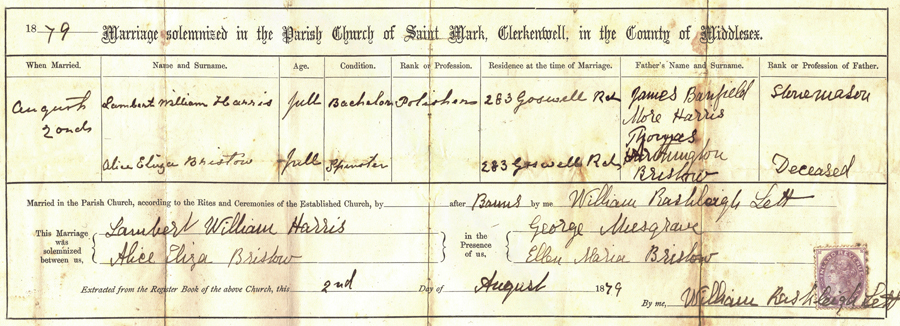 1879 Marriage solemnized in the Parish Church of Saint Mark, Clerkenwell, in the County of Middlesex.
When Married. Name and Surname. Age. Condition. Rank or Profession. Residence at the time of Marriage. Father's Name and Surname. Rank or Profession of Father.
August 2ond Lambert William Harris full Bachelor Polisher 283 Goswell Rd James Barifield More Harris Stonemason
Alice Eliza Bristow full Spinster 283 Goswell Rd Thomas Bristow Deceased
Married in the Parish Church, according to the Rites and Ceremonies of the Established Church, by after Banns by me William Rashleigh Lett
This Marriage was solemnized between us, Lambert William Harris in the Presence of us, George Musgrave
Alice Eliza Bristow Ellen Maria Bristow
Extracted from the Register Book of the above Church, this 2nd Day of August 1879
By me, William Rashleigh Lett